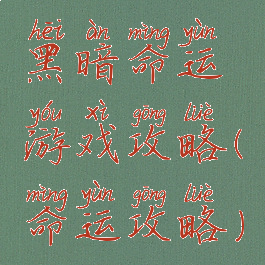 hēi àn mìng yùn
黑暗命运
yóu xì gōng lüè
游戏攻略(
mìng yùn gōng lüè
命运攻略)